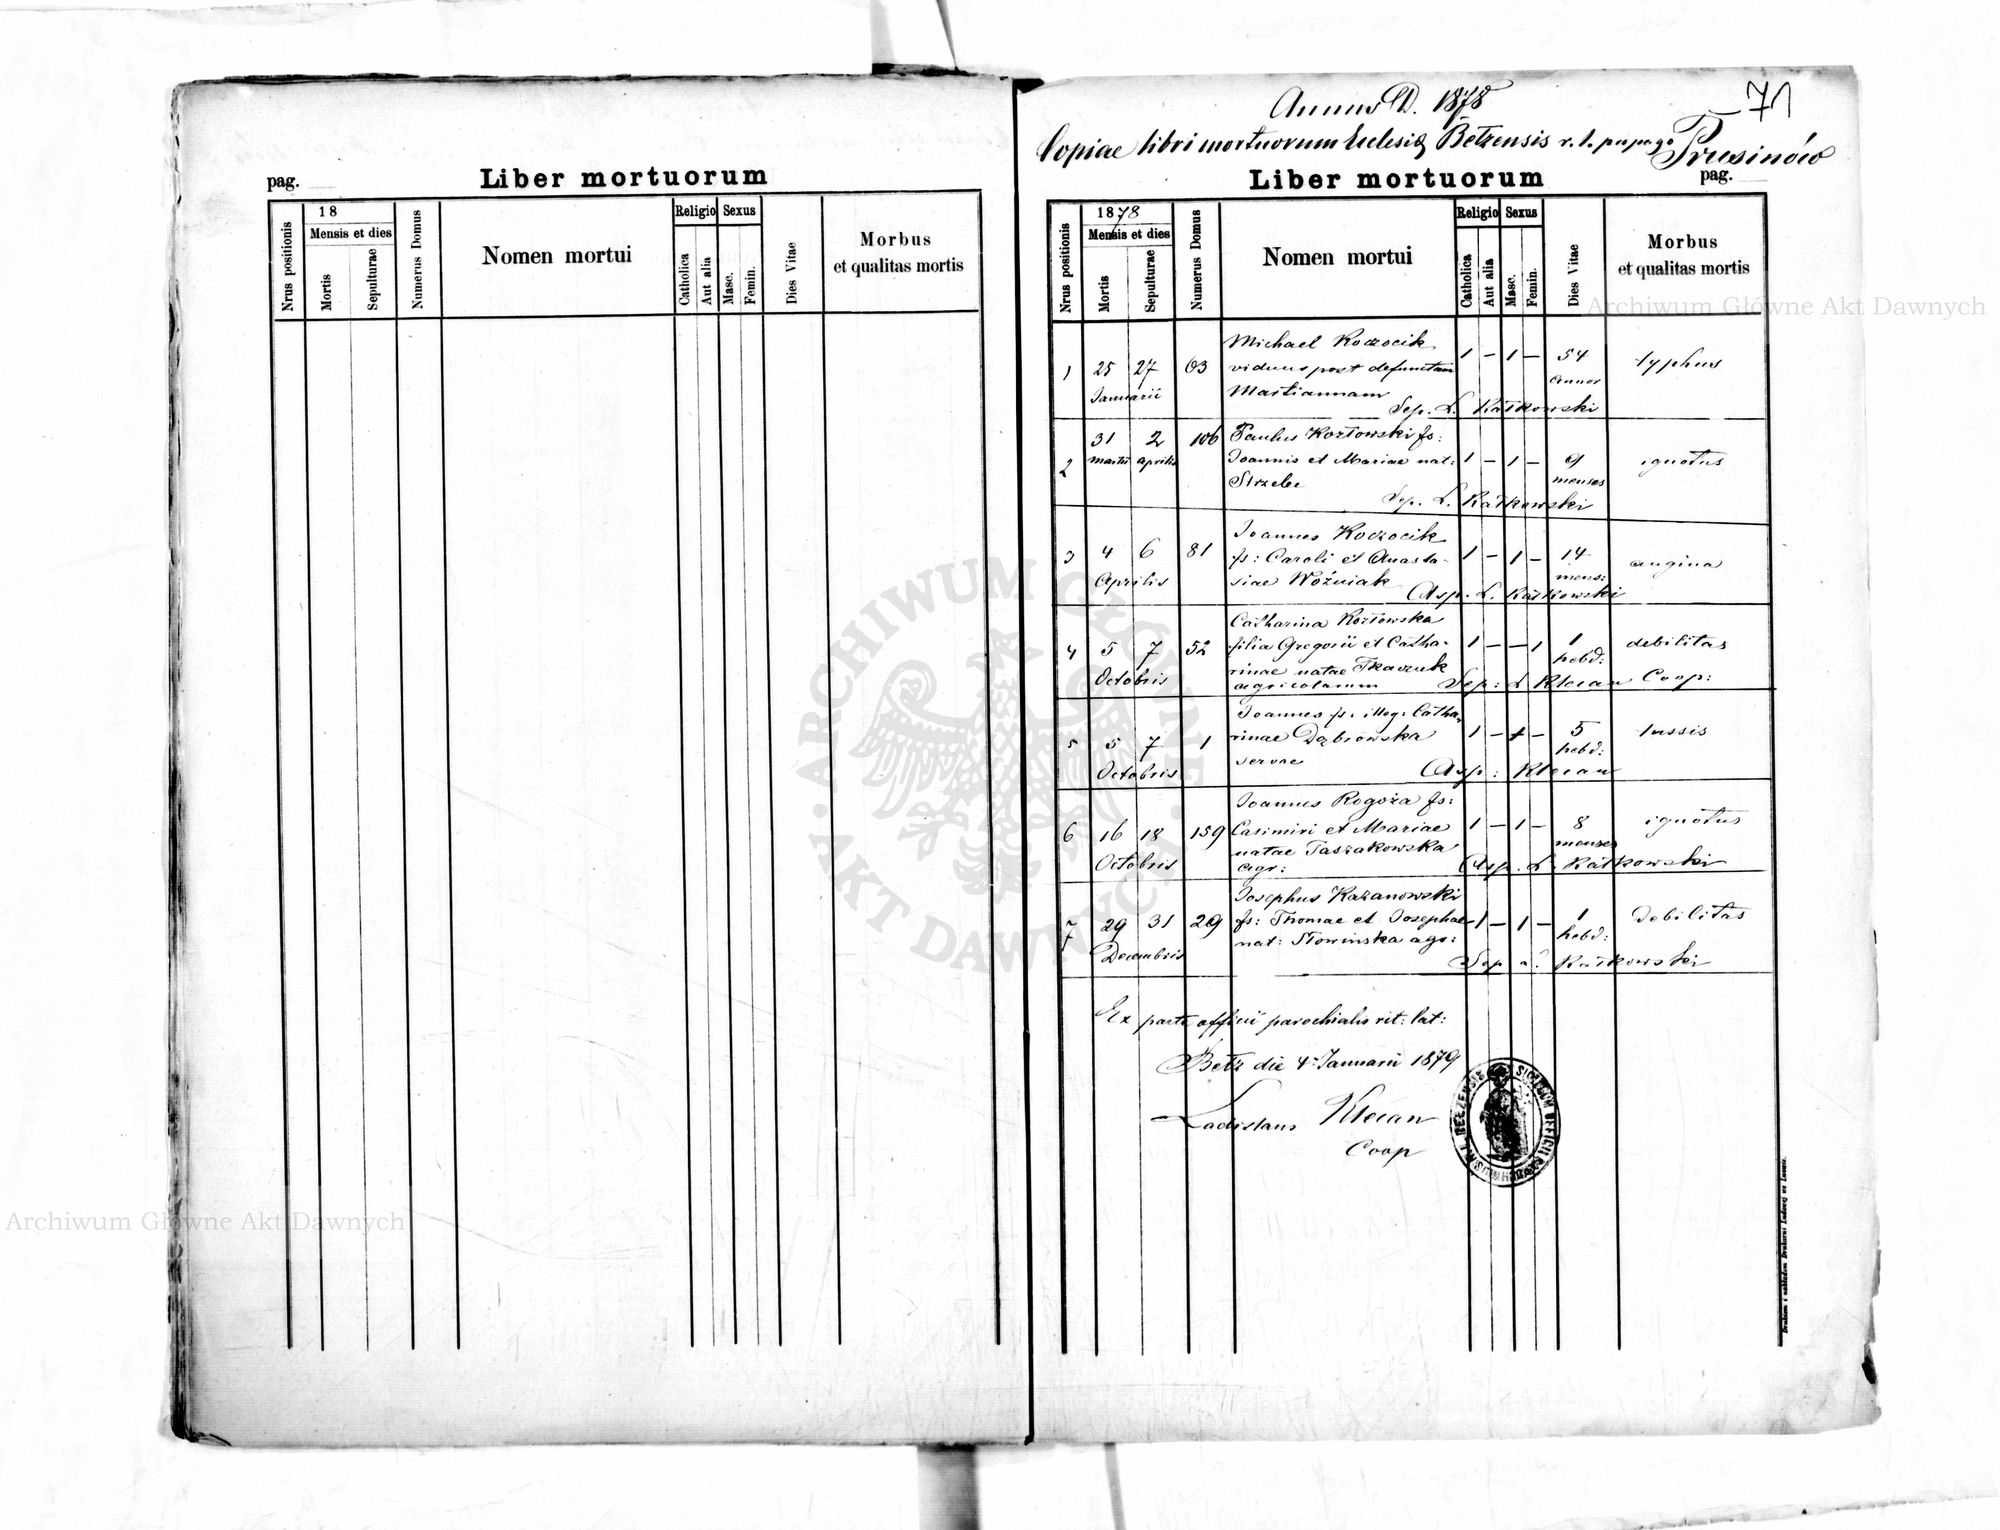 pag.
Liber mortuorum
Nrus positionis
18
Mensis et dies
Mortis
Sepulturae
Numerus Domus
Nomen mortui
Religio
Catholica
Aut alia
Sexus
Masc.
Femin.
Dies Vitae
Morbus
et qualitas mortis
71
Annus D. 1878
Copiae libri mortuorum Ecclesiæ Bełzensis r. l. pro pago
Prusinów
Liber mortuorum
pag.
Nrus positionis
1878
Mensis et dies
Mortis
Sepulturae
Numerus Domus
Nomen mortui
Religio
Catholica
Aut alia
Sexus
Masc.
Femin.
Dies Vitae
Morbus
et qualitas mortis
1 25 27 Januarii 63
Michael Koczocik
viduus post defunctam
Martiannam
1 – 1 – 54 annor typhus
Sep. L. Rałkowski
2 31 martii 2 aprilis 106
Paulus Kozłowski fs:
Joannis et Mariae nat:
Strzebe
1 – 1 – 9 menses ignotus
Sep. L. Rałkowski
3 4 6 Aprilis 81
Joannes Koczocik
fs: Caroli et Anasta-
siae Woźniak
1 – 1 – 14 mens: angina
Asp. L. Rałkowski
4 5 7 Octobris 52
Catharina Kozłowska
filia Gregorii et Catha-
rinae natae Tkaczuk
agricolarum
1 – – 1 1 hebd: debilitas
Sep: L Klecan Coop:
5 5 7 Octobris 1
Joannes fs. illeg. Catha-
rinae Dąbrowska
servae
1 – 1 – 5 hebd: tussis
Asp: Klecan
6 16 18 Octobris 159
Joannes Rogoża fs:
Casimiri et Mariae
natae Taszakowska
agr:
1 – 1 – 8 menses ignotus
Asp. L. Rałkowski
7 29 31 Decembris 29
Josephus Kazanowski
fs: Thomae et Josephae
nat: Słowińska agr:
1 – 1 – 1 hebd: Debilitas
Sep Rałkowski
Ex parte officii parochialis rit: lat:
Bełz die 4 Januarii 1879
Ladislaus Klecan
Coop
Drukiem i nakładem Drukarni Ludowej we Lwowie.
ARCHIWUM GŁÓWNE AKT DAWNYCH
Archiwum Główne Akt Dawnych
Archiwum Główne Akt Dawnych